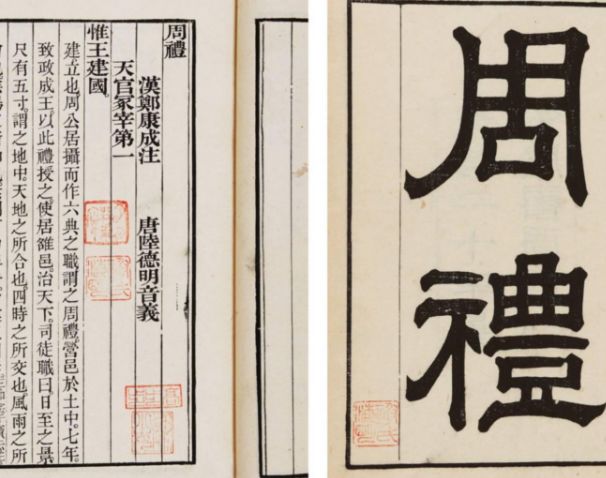 周禮
漢鄭康成注 唐陸德明音義
天官冢宰第一
惟王建國。
建立也。周公居攝而作六典之職謂之周禮。營邑於土中。七年。
致政成王。以此禮授之。使居雒邑。治天下。司徒職曰日至之景
尺有五寸謂之地中。天地之所合也。四時之所交也。風雨之所
周禮